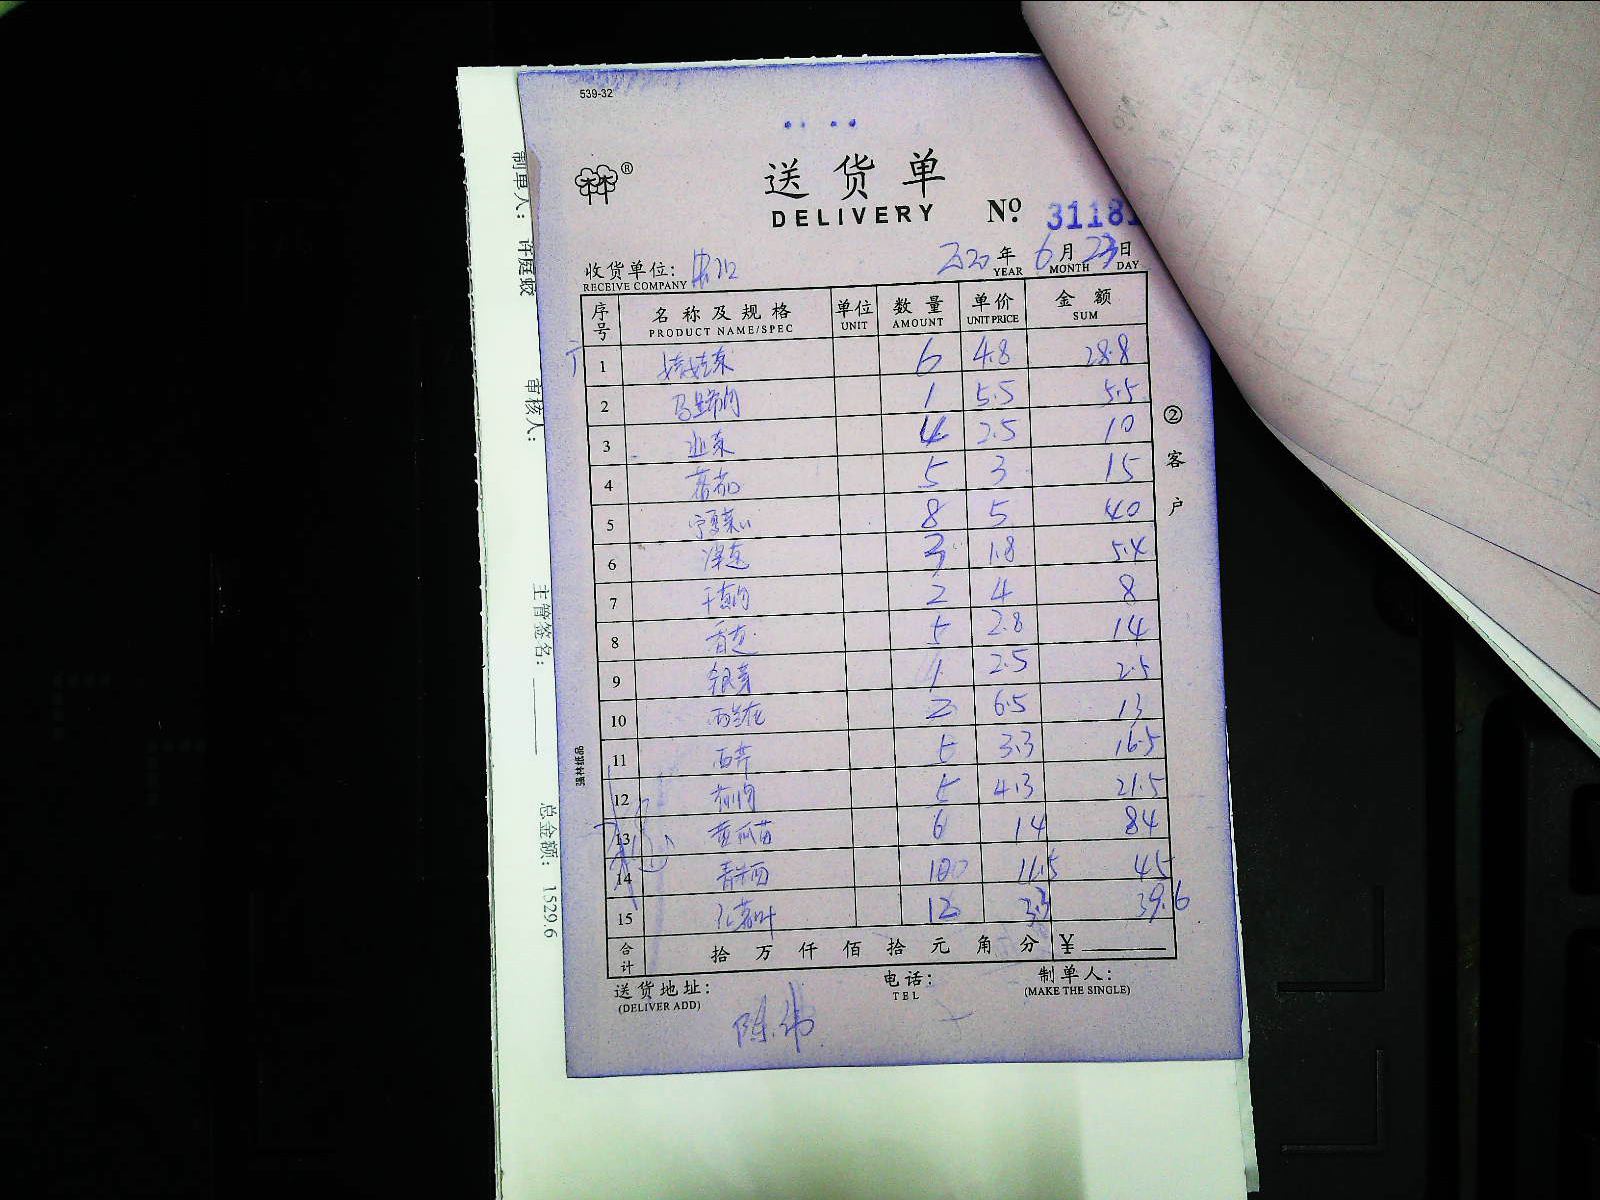 539-32
®
送货单
DELIVERY
Nº 3118
收货单位:
RECEIVE COMPANY
2020年 6月 23日
YEAR MONTH DAY
序号 名称及规格 单位 数量 单价 金额
PRODUCT NAME/SPEC UNIT AMOUNT UNIT PRICE SUM
1 娃娃菜 6 4.8 28.8
2 1 5.5 5.5
3 4 2.5 10
4 番茄 5 3 15
5 宁夏菜心 8 5 40
6 洋葱 3 1.8 5.4
7 2 4 8
8 5 2.8 14
9 银芽 1 2.5 2.5
10 西兰花 2 6.5 13
11 西芹 5 3.3 16.5
12 5 4.3 21.5
13 黄瓜苗 6 14 84
14 100 45
15 12 3.3 39.6
合计 拾万仟佰拾元角分 ¥
送货地址:
(DELIVER ADD)
电话:
TEL
制单人:
(MAKE THE SINGLE)
陈伟
②客户
强林纸品
制单人: 许庭
审核人:
主管签名:
总金额: 1529.6